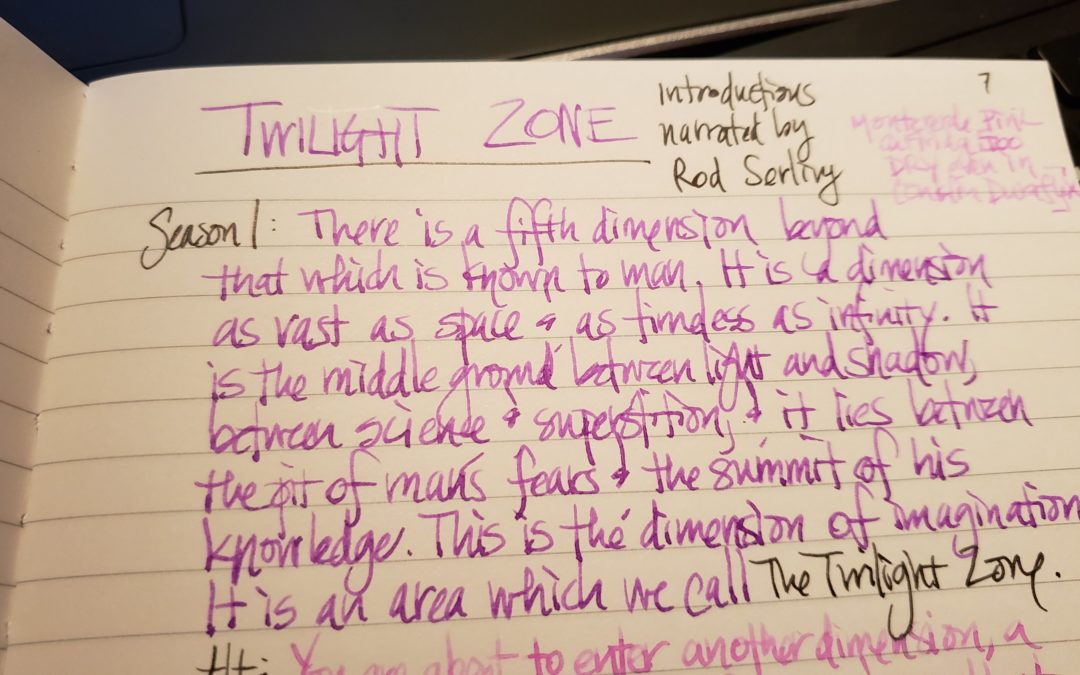 TWILIGHT ZONE
Introductions
narrated by
Rod Serling
7
Monteverde Pink
Season 1: There is a fifth dimension beyond
that which is known to man. It is a dimension
as vast as space & as timeless as infinity. It
is the middle ground between light and shadow,
between science & superstition, & it lies between
the pit of man's fears & the summit of his
knowledge. This is the dimension of imagination
It is an area which we call The Twilight Zone.
You are about to enter another dimension, a